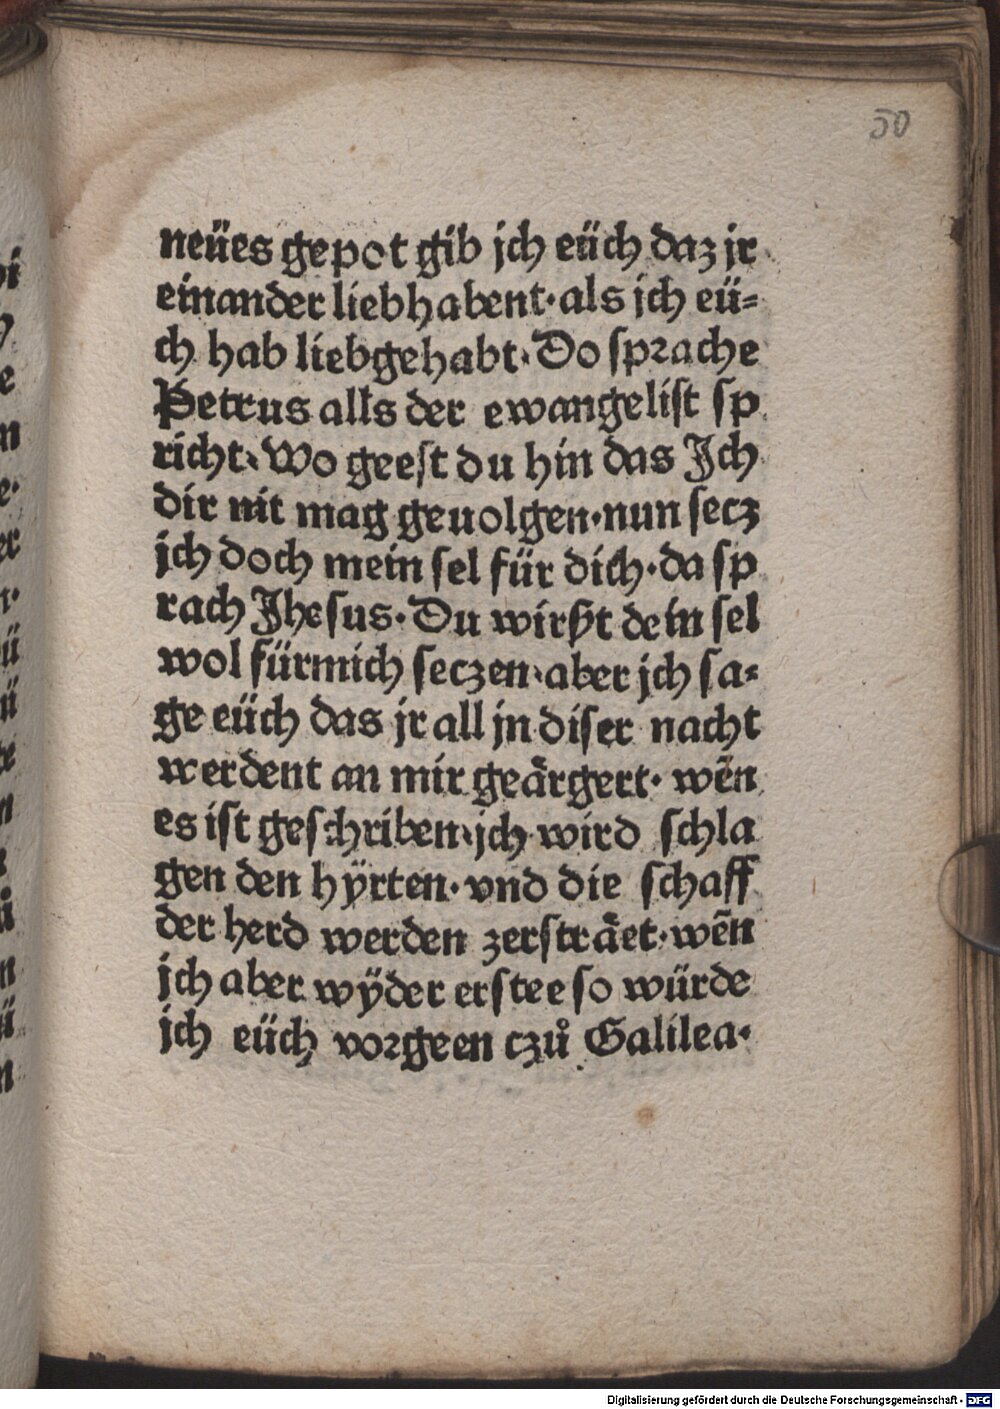 50
neües gepot gib jch eüch daz jr
einander liebhabent· als jch eü=
ch hab liebgehabt· Do sprache
Petrus alls der ewangelist sp
richt· Wo geest du hin das Jch
dir nit mag geuolgen· nun secz
jch doch mein sel für dich· da sp
rach Jhesus· Du wirst dein sel
wol fürmich seczen· aber jch sa=
ge eüch das jr all jn diser nacht
werdent an mir geärgert· wen̄
es ist geschriben· jch wird schla
gen den hÿrten· vnd die schaff
der herd werden zersträet· wen̄
jch aber wÿder erstee so würde
jch eüch vorgeen czů Galilea·
Digitalisierung gefördert durch die Deutsche Forschungsgemeinschaft - DFG